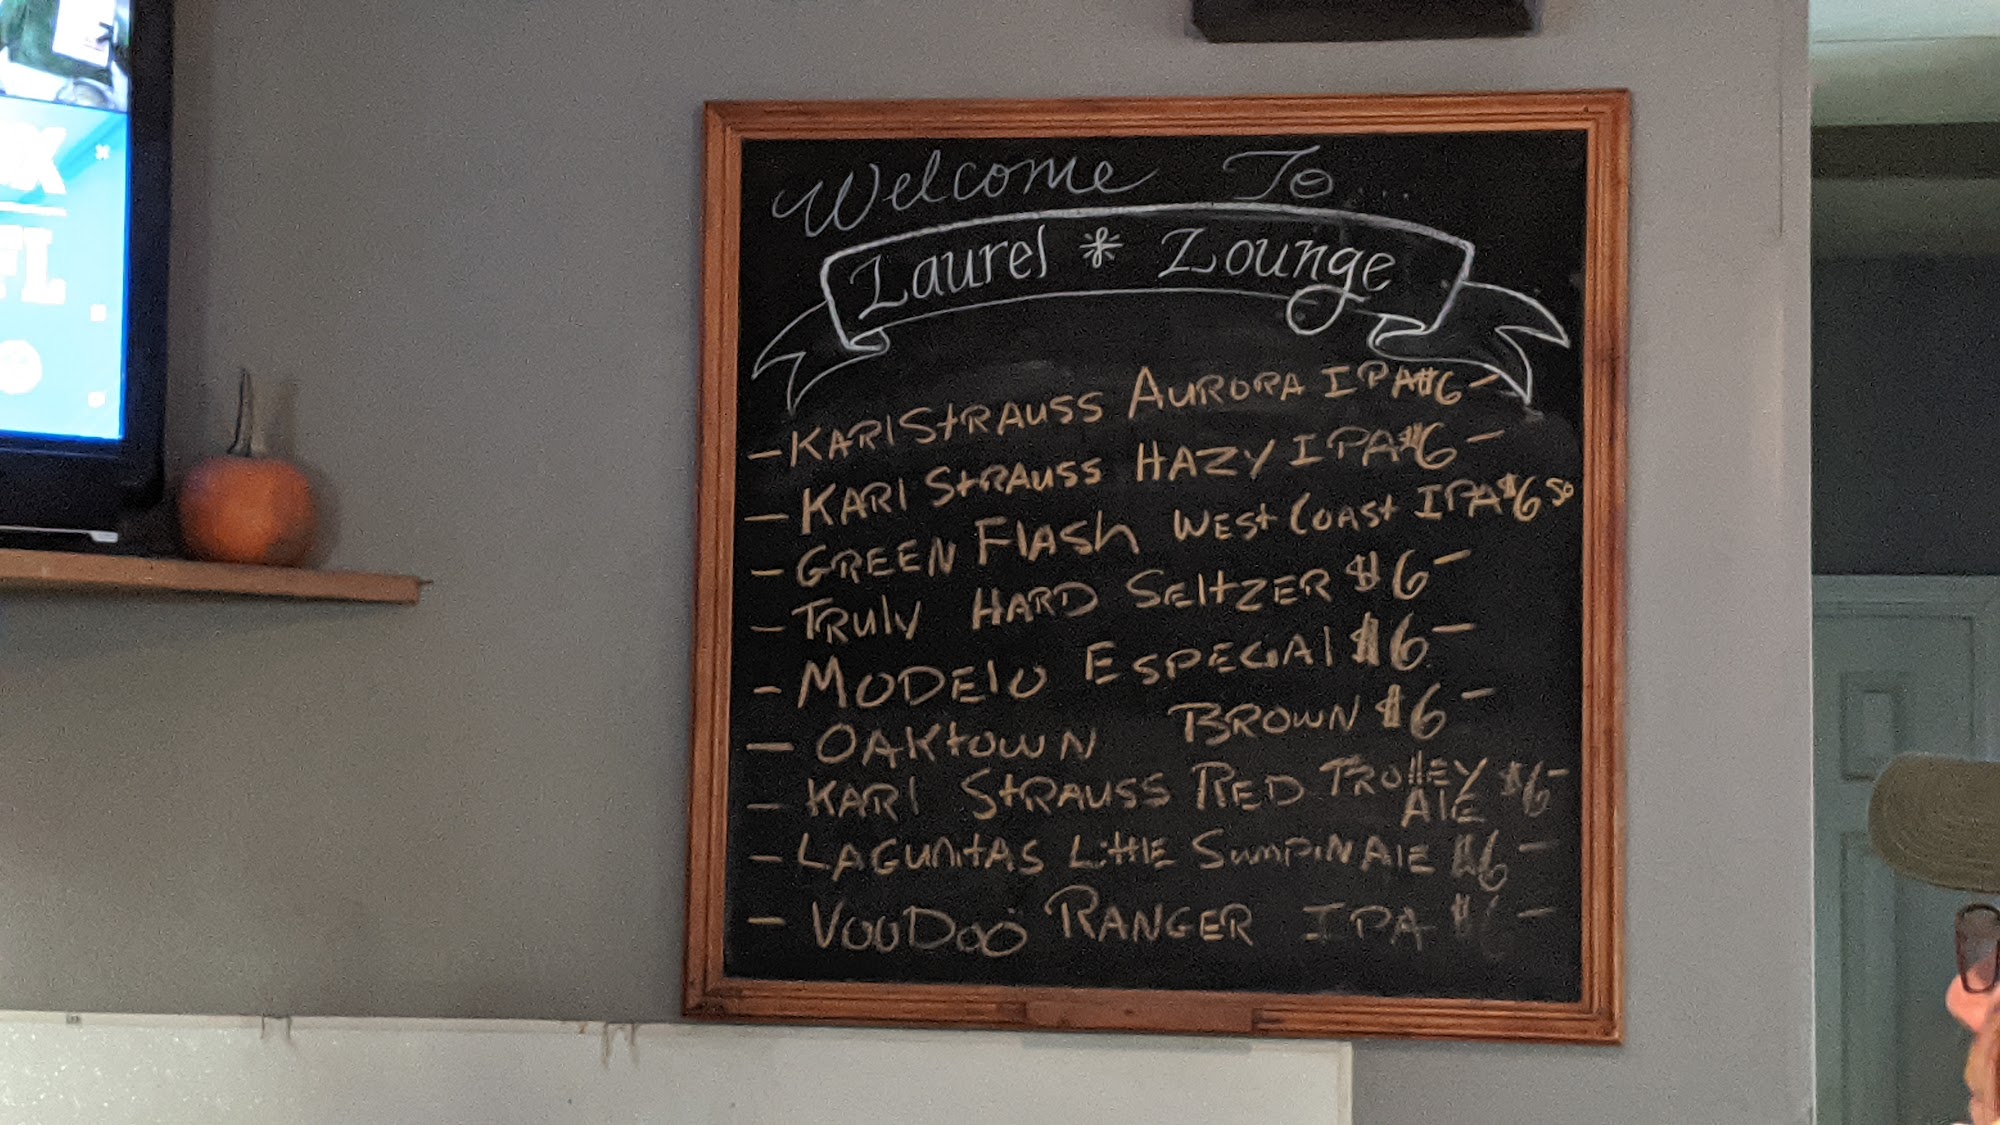 Welcome To...
Laurel * Lounge
- KARl StRAUSS AURORA IPA $6-
- KARl StRAUSS HAZY IPA $6-
- GREEN FlASh WESt COASt IPA $6 50
- TRUly HARD SEltZER $6-
- MODElO ESPECIAl $6-
- OAKtOWN BROWN $6-
- KARl StRAUSS RED TROllEY AlE $6-
- LAGUNitAS LittlE SumPiN AlE $6-
- VOODOO RANGER IPA $6-